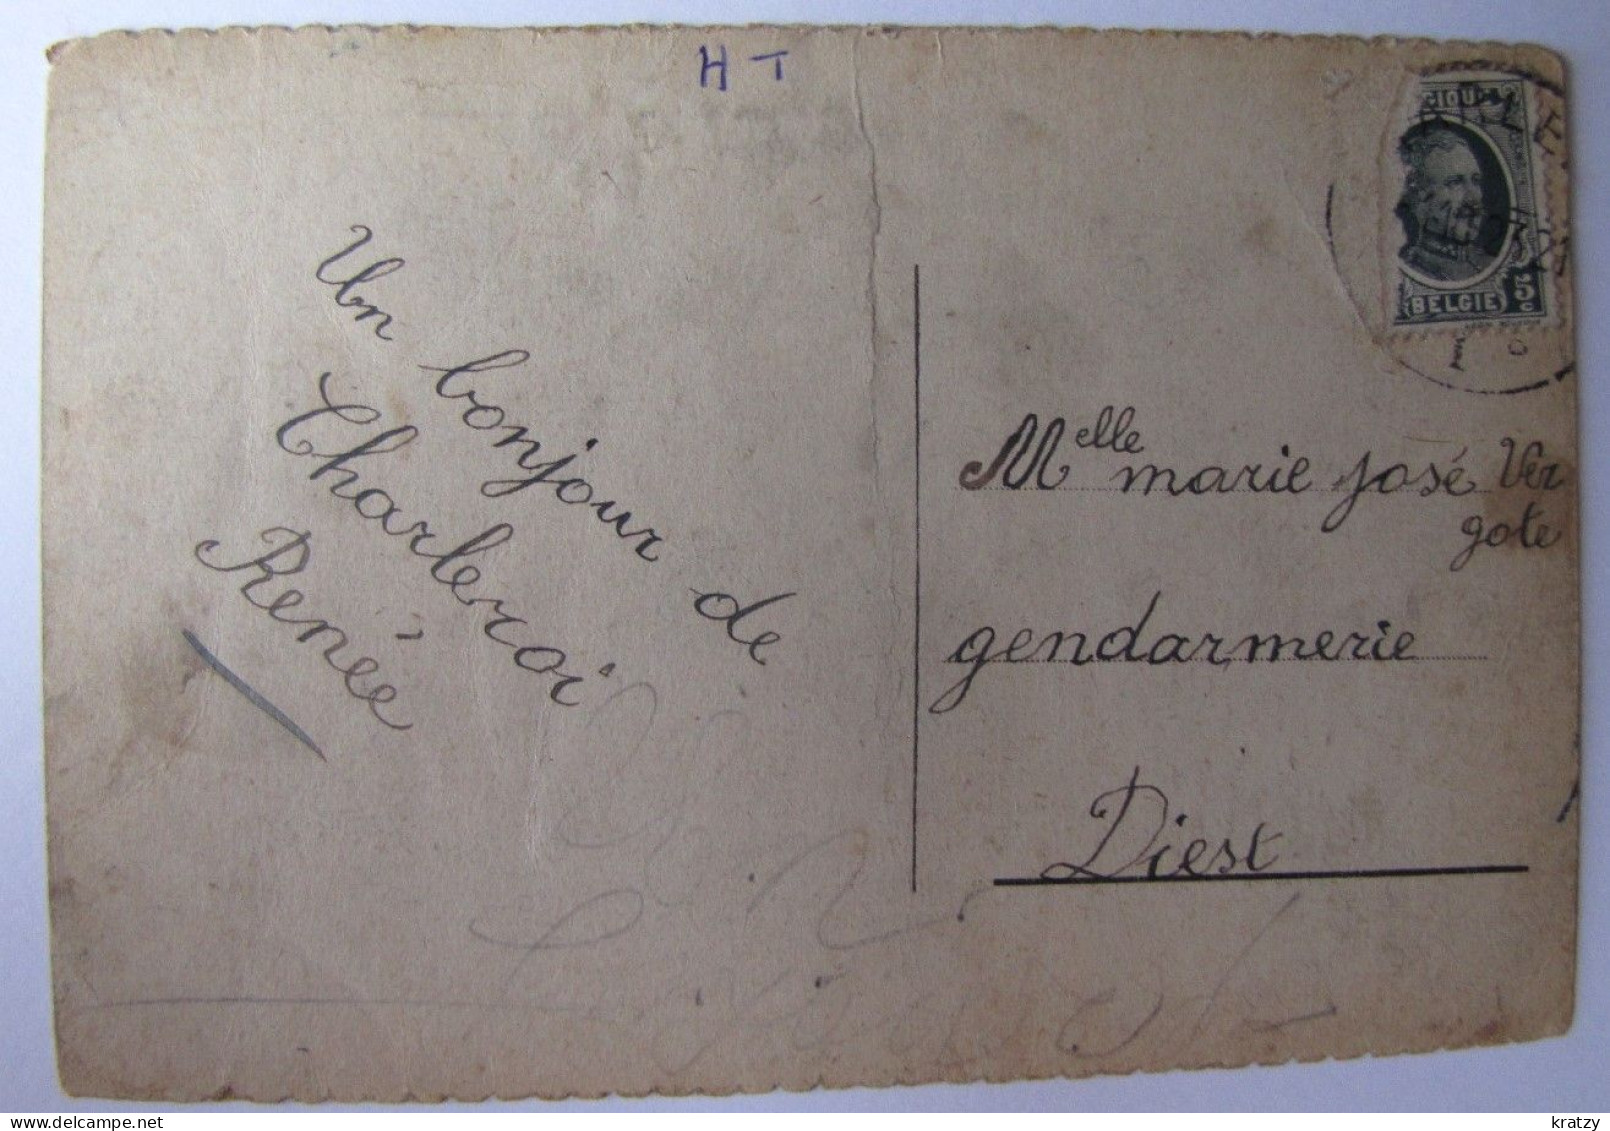 H T
Un bonjour de
Charleroi
Renée
BELGIE 5 c
Melle marie josé Ver
gote
gendarmerie
Diest
kratzy